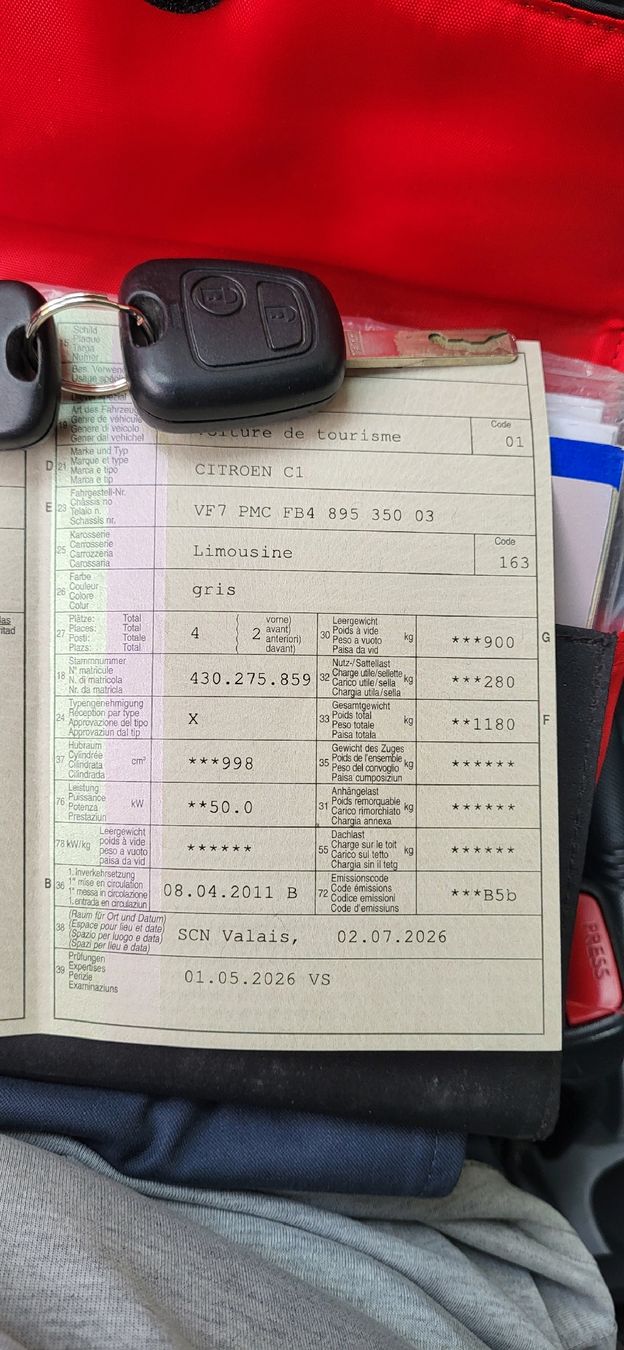 15 Schild
Plaque
Targa
Numer
Bes. Verwend
Usage spéci
19 Art des Fahrzeug
Genre de véhicule
Genere di veicolo
Gener dal vehichel
Voiture de tourisme
Code
01
D 21 Marke und Typ
Marque et type
Marca e tipo
Marca e tip
CITROEN C1
E 23 Fahrgestell-Nr.
Châssis no
Telaio n.
Schassis nr.
VF7 PMC FB4 895 350 03
25 Karosserie
Carrosserie
Carrozzeria
Carossaria
Limousine
Code
163
26 Farbe
Couleur
Colore
Colur
gris
27 Plätze: Total
Places: Total
Posti: Totale
Plazs: Total
4
( vorne)
( avant)
( anteriori)
( davant)
2
30 Leergewicht
Poids à vide
Peso a vuoto
Paisa da vid
kg
***900
G
18 Stammnummer
N° matricule
N. di matricola
Nr. da matricla
430.275.859
32 Nutz-/Sattellast
Charge utile/sellette
Carico utile/sella
Chargia utila/sella
kg
***280
24 Typengenehmigung
Réception par type
Approvazione del tipo
Approvaziun dal tip
X
33 Gesamtgewicht
Poids total
Peso totale
Paisa totala
kg
**1180
F
37 Hubraum
Cylindrée
Cilindrata
Cilindrada
cm³
***998
35 Gewicht des Zuges
Poids de l'ensemble
Peso del convoglio
Paisa cumposiziun
kg
******
76 Leistung
Puissance
Potenza
Prestaziun
kW
**50.0
31 Anhängelast
Poids remorquable
Carico rimorchiato
Chargia annexa
kg
******
78 kW/kg Leergewicht
poids à vide
peso a vuoto
paisa da vid
******
55 Dachlast
Charge sur le toit
Carico sui tetto
Chargia sin il tetg
kg
******
B 36 1. Inverkehrsetzung
1re mise en circulation
1a messa in circolazione
1. entrada en circulaziun
08.04.2011 B
72 Emissionscode
Code émissions
Codice emissioni
Code d'emissiuns
***B5b
38 (Raum für Ort und Datum)
(Espace pour lieu et date)
(Spazio per luogo e data)
(Spazi per lieu e data)
SCN Valais, 02.07.2026
39 Prüfungen
Expertises
Perizie
Examinaziuns
01.05.2026 VS
PRESS